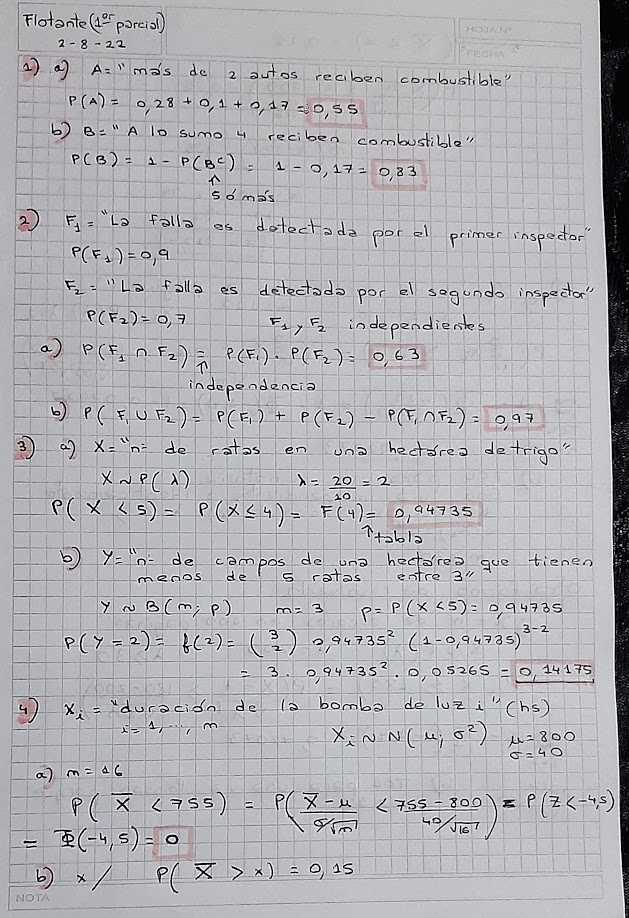 Flotante (1er parcial)
2-8-22
HOJA Nº
FECHA
1) a) A = "más de 2 autos reciben combustible"
P(A) = 0,28 + 0,1 + 0,17 = 0,55
b) B = "A lo sumo 4 reciben combustible"
P(B) = 1 - P(Bᶜ) = 1 - 0,17 = 0,83
↑
5 ó más
2) F₁ = "La falla es detectada por el primer inspector"
P(F₁) = 0,9
F₂ = "La falla es detectada por el segundo inspector"
P(F₂) = 0,7 F₁ y F₂ independientes
a) P(F₁ ∩ F₂) = P(F₁) . P(F₂) = 0,63
↑
independencia
b) P(F₁ ∪ F₂) = P(F₁) + P(F₂) - P(F₁ ∩ F₂) = 0,97
3) a) X = "nº de ratas en una hectárea de trigo"
X ~ P(λ) λ = 20/10 = 2
P(X < 5) = P(X ≤ 4) = F(4) = 0,94735
↑ tabla
b) Y = "nº de campos de una hectárea que tienen
menos de 5 ratas entre 3"
Y ~ B(m; p) m = 3 p = P(X < 5) = 0,94735
P(Y = 2) = f(2) = (3 2) 0,94735² (1 - 0,94735)³⁻²
= 3 . 0,94735² . 0,05265 = 0,14175
4) Xᵢ = "duración de la bomba de luz i" (hs)
i = 1, ..., m
Xᵢ ~ N(μ; σ²) μ = 800
σ = 40
a) m = 16
P(X̅ < 755) = P((X̅ - μ)/(σ/√m) < (755 - 800)/(40/√16)) = P(Z < -4,5)
= Φ(-4,5) = 0
b) x / P(X̅ > x) = 0,15
NOTA